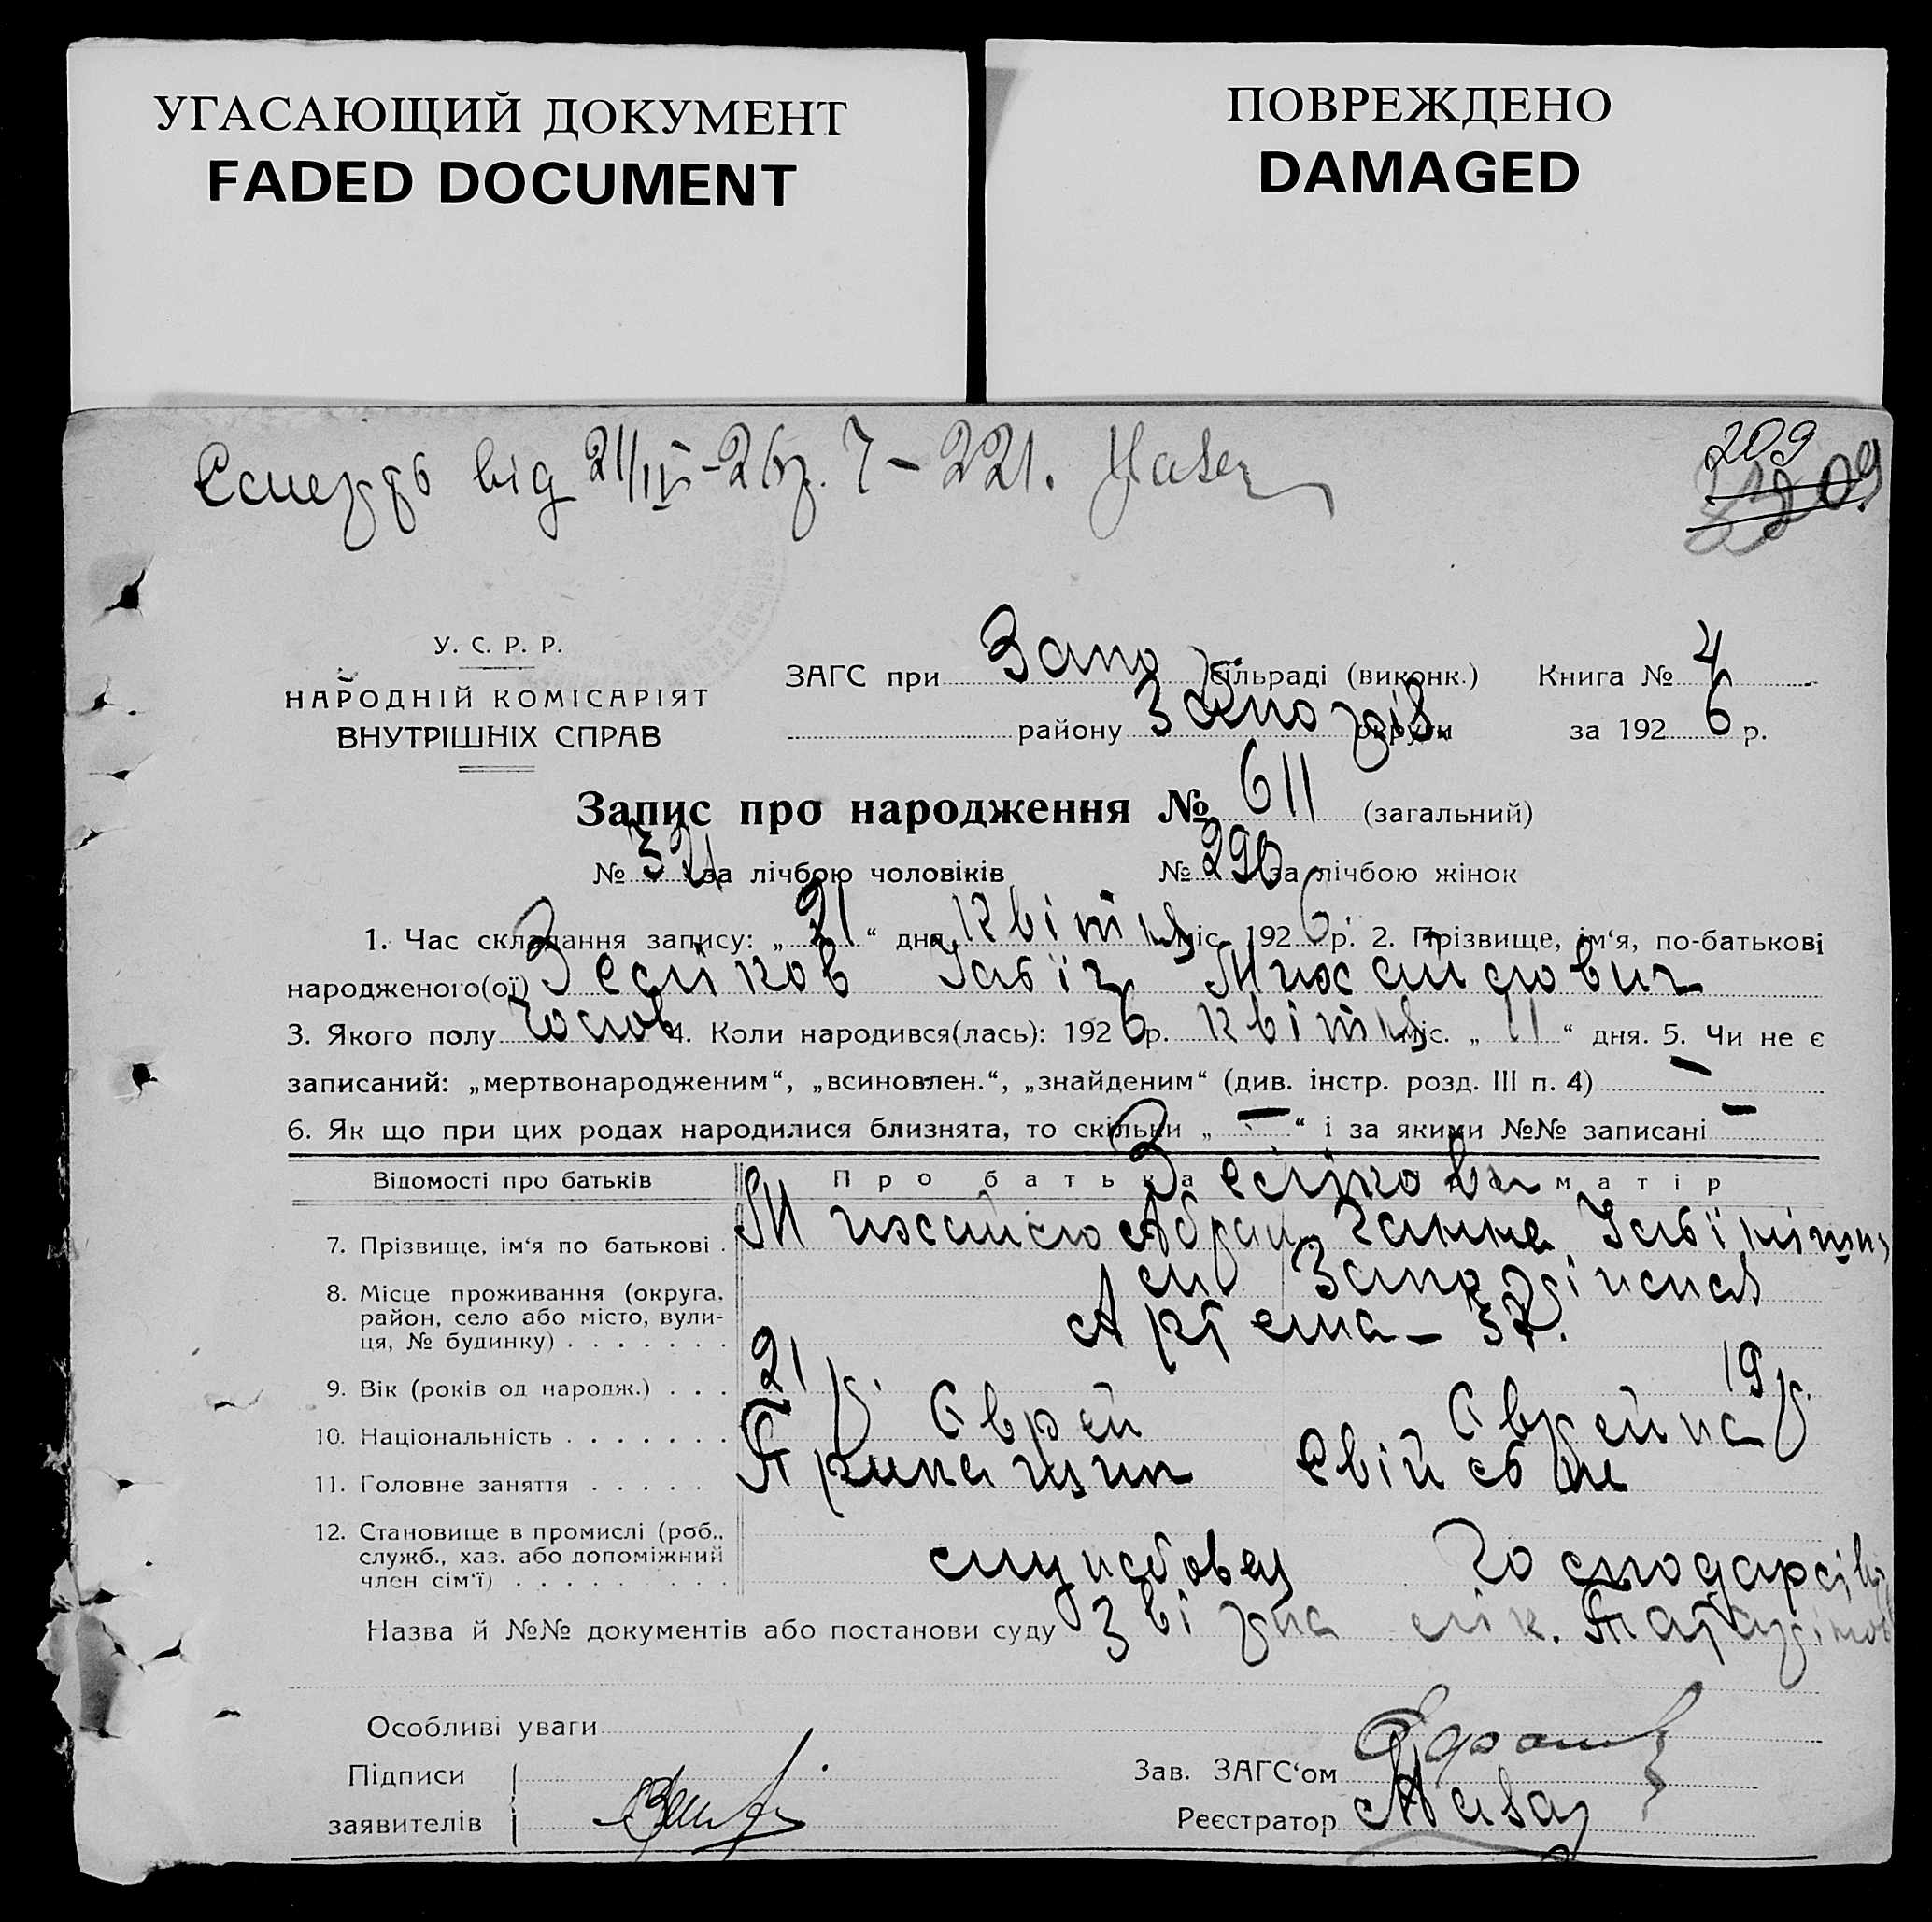 УГАСАЮЩИЙ ДОКУМЕНТ
FADED DOCUMENT
ПОВРЕЖДЕНО
DAMAGED
від 21/IV-26р. 7-221.
209
У. С. Р. Р.
НАРОДНІЙ КОМІСАРІЯТ
ВНУТРІШНІХ СПРАВ
ЗАГС при Запо сільраді (виконк.) Книга № 4
району Запоріз. округи за 192 6 р.
Запис про народження № 611 (загальний)
№ 321 за лічбою чоловіків № 290 за лічбою жінок
1. Час складання запису: „ 21 “ дня квітня міс. 192 6 р. 2. Прізвище, ім‘я, по-батькові
народженого(ої) Михайлович
3. Якого полу Чолов 4. Коли народився(лась): 192 6 р. квітня міс. „ 11 “ дня. 5. Чи не є
записаний: „мертвонародженим“, „всиновлен.“, „знайденим“ (див. інстр. розд. III п. 4) —
6. Як що при цих родах народилися близнята, то скільки „ — “ і за якими №№ записані —
Відомості про батьків Про батька матір
7. Прізвище, ім‘я по батькові . Михайло Абрам Ганна
8. Місце проживання (округа,
район, село або місто, вули-
ця, № будинку) . . . . . . . Артема – 37.
9. Вік (років од народж.) . . . 21 р. 19 р.
10. Національність . . . . . . . Єврей Єврейка
11. Головне заняття . . . . . Прикащик
12. Становище в промислі (роб.,
служб., хаз. або допоміжний
член сім‘ї) . . . . . . . . . службовец
Назва й №№ документів або постанови суду лік.
Особливі уваги
Підписи
заявителів
Зав. ЗАГС‘ом
Реєстратор